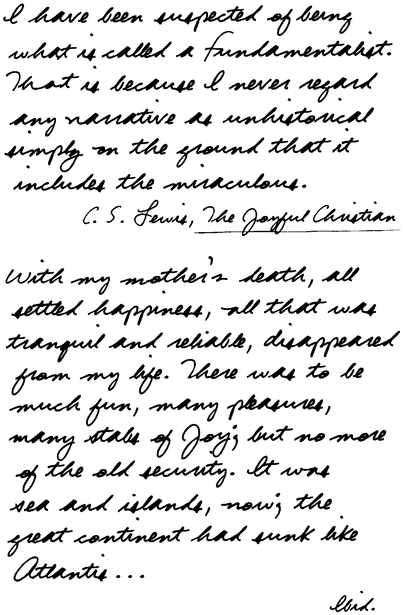 I have been suspected of being
what is called a Fundamentalist.
That is because I never regard
any narrative as unhistorical
simply on the ground that it
includes the miraculous.
C. S. Lewis, The Joyful Christian
With my mother's death, all
settled happiness, all that was
tranquil and reliable, disappeared
from my life. There was to be
much fun, many pleasures,
many stabs of Joy; but no more
of the old security. It was
sea and islands, now; the
great continent had sunk like
Atlantis...
Ibid.